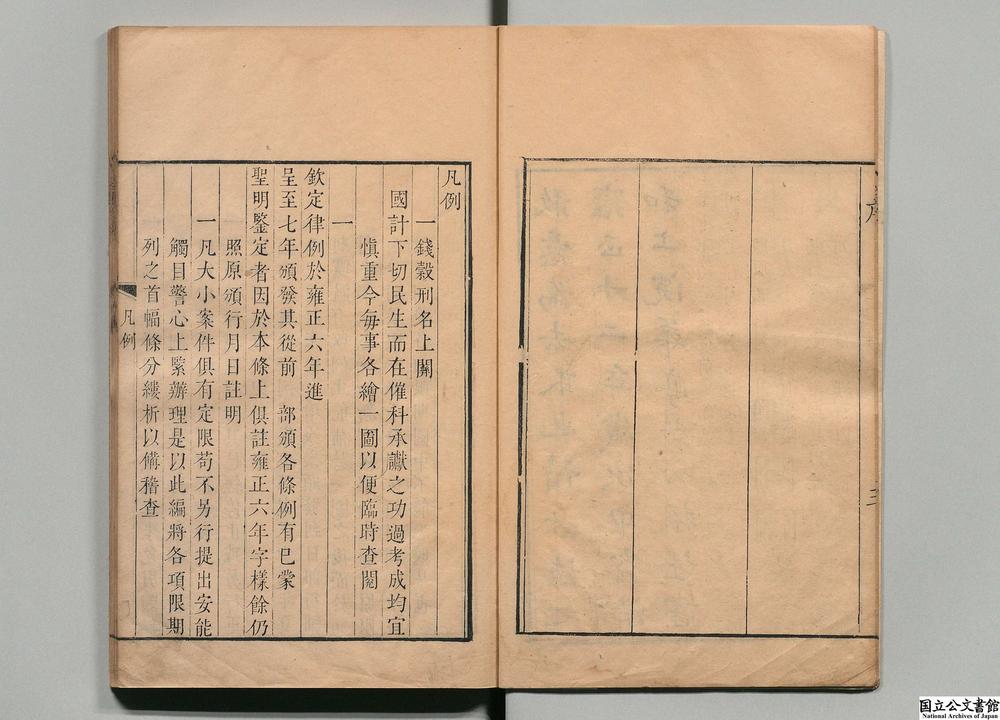 序
三
凡例
一錢穀刑名上關
國計下切民生而在催科承讞之功過考成均宜
愼重今每事各繪一圖以便臨時查閱
一
欽定律例於雍正六年進
呈至七年頒發其從前　部頒各條例有已蒙
聖明鑒定者因於本條上俱註雍正六年字樣餘仍
照原頒行月日註明
一凡大小案件俱有定限苟不另行提出安能
觸目警心上緊辦理是以此編將各項限期
列之首幅條分縷析以備稽查
凡例
国立公文書館
National Archives of Japan